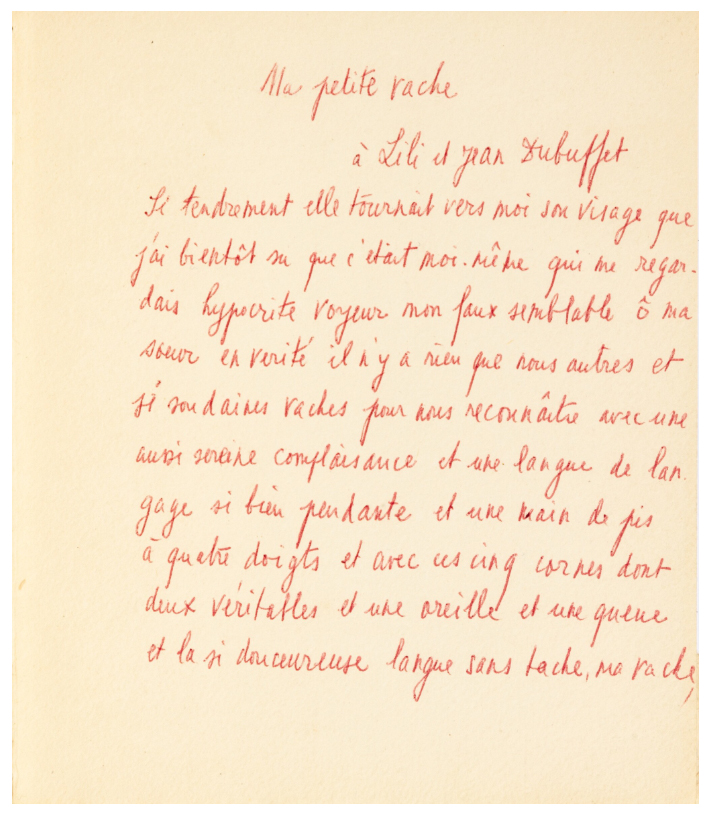 Ma petite vache
à Lili et Jean Dubuffet
Si tendrement elle tournait vers moi son visage que
j'ai bientôt su que c'était moi-même qui me regar-
dais hypocrite voyeur mon faux semblable ô ma
soeur en verité il n'y a rien que nous autres et
si soudaines vaches pour nous reconnaître avec une
aussi sereine complaisance et une langue de lan-
gage si bien pendante et une main de pis
à quatre doigts et avec ces cinq cornes dont
deux véritables et une oreille et une queue
et la si douceureuse langue sans tache, ma vache,